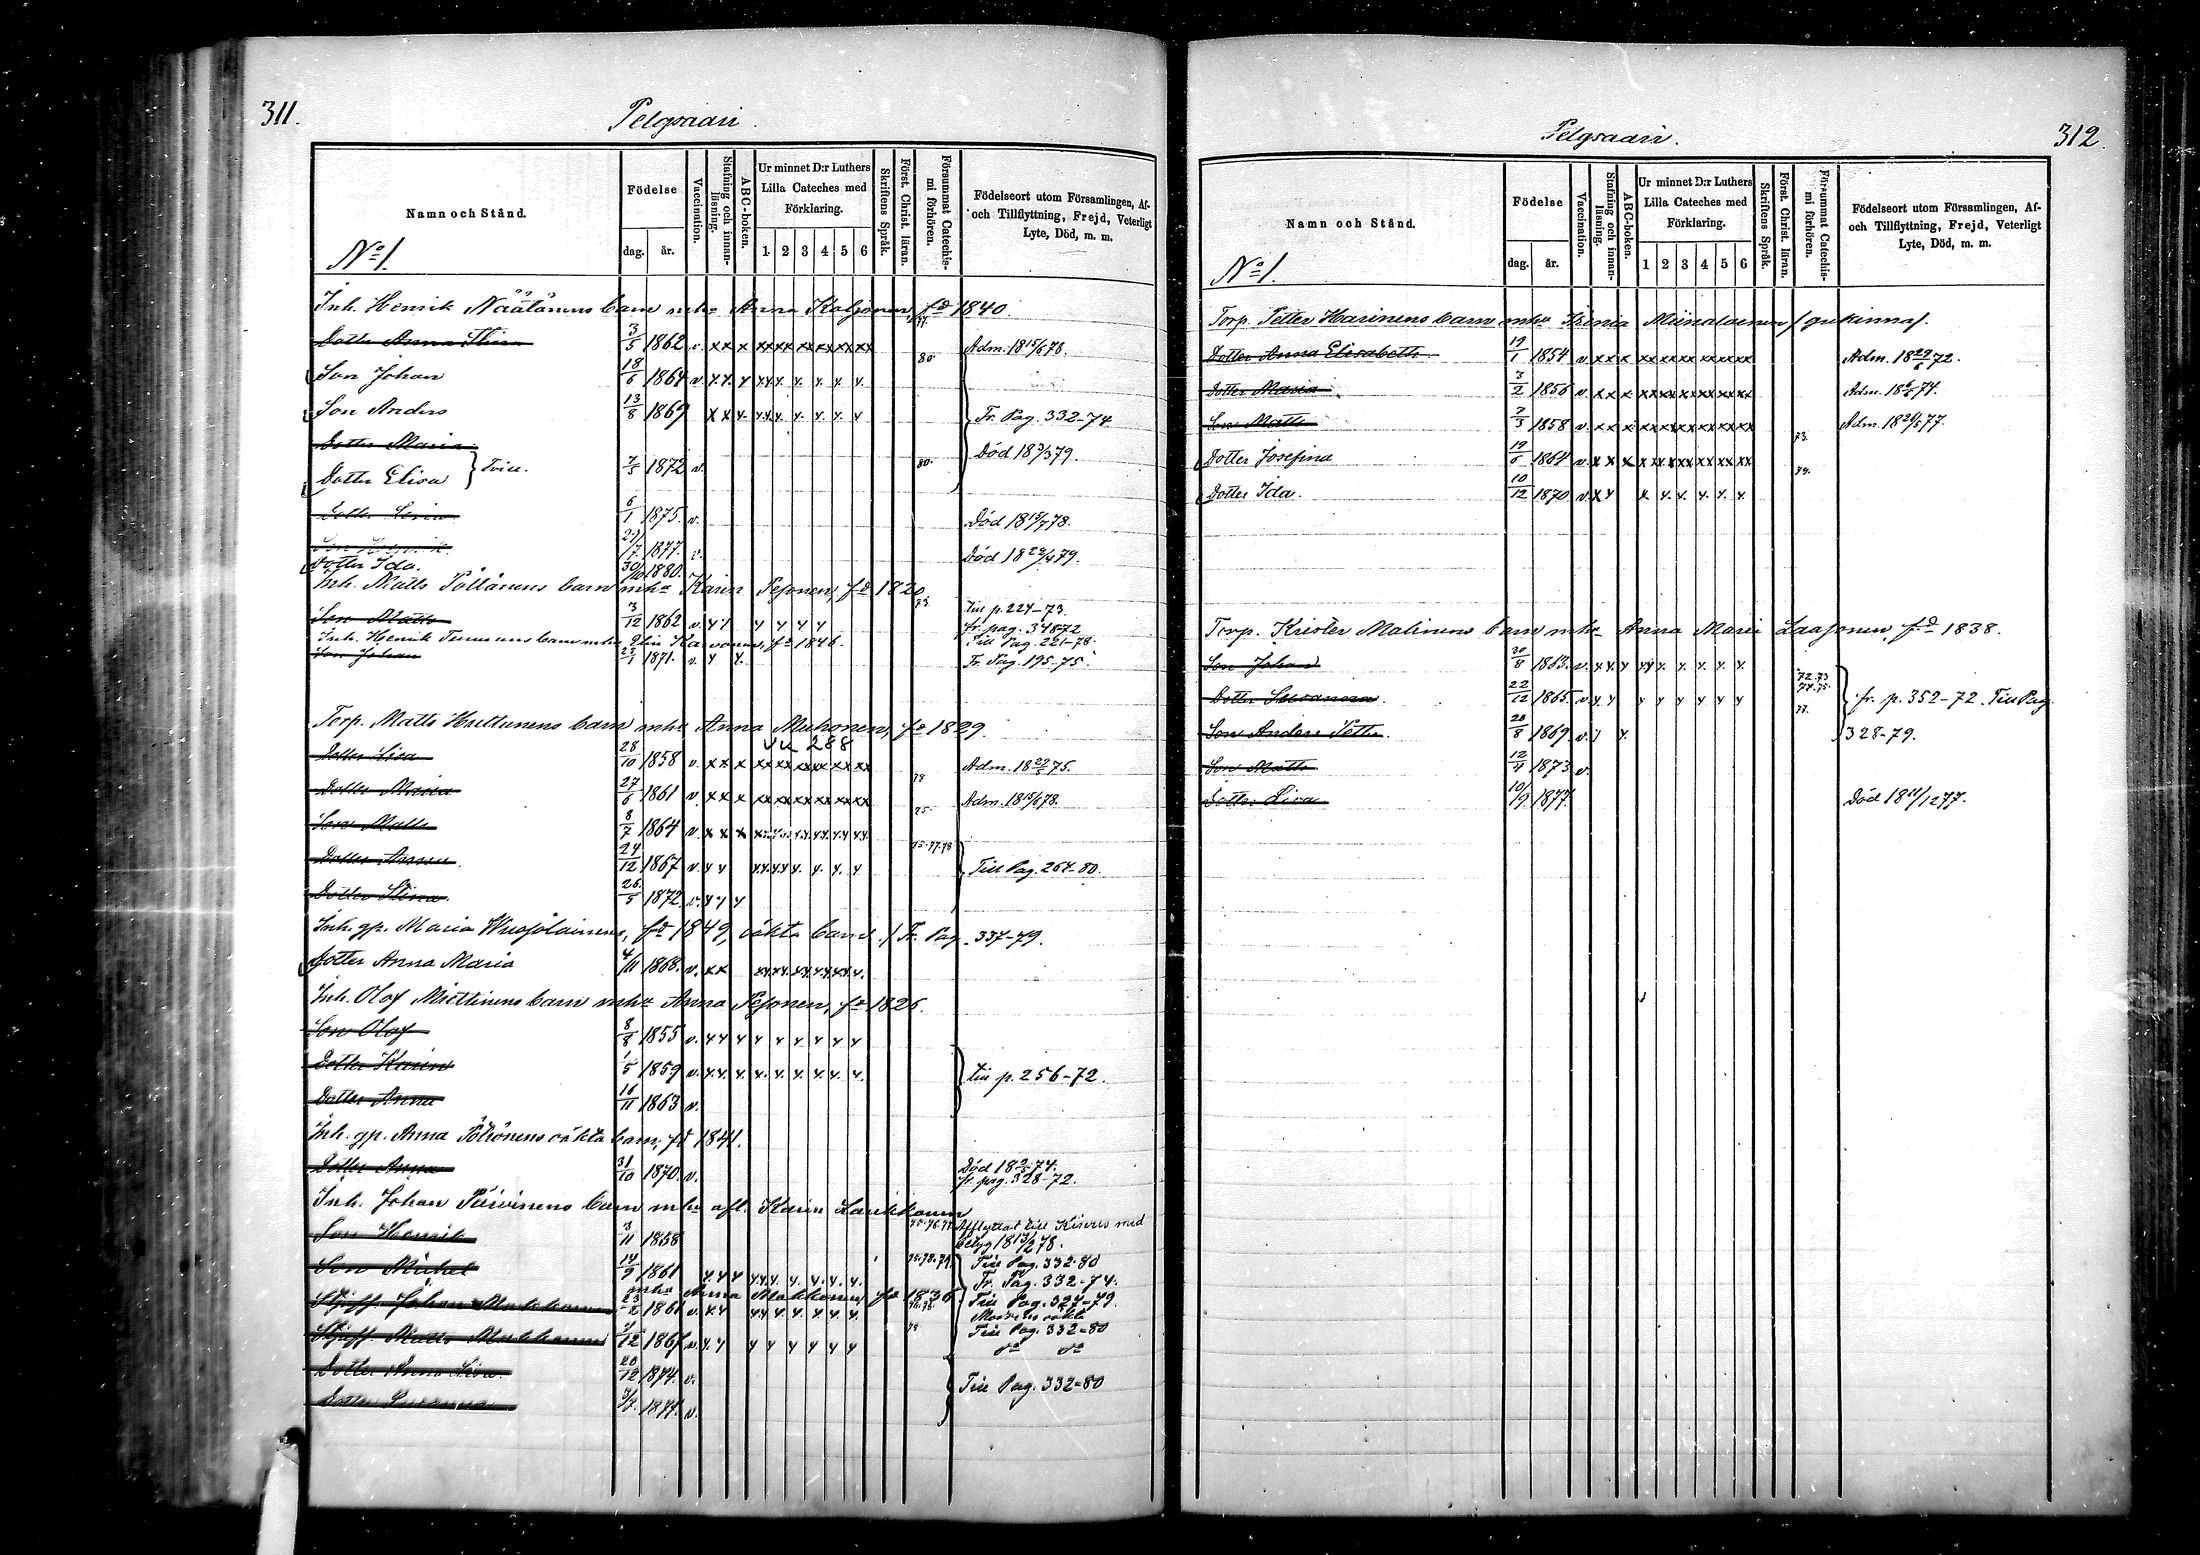 311.
Pelgsaari.
Namn och Stånd.
Födelse
dag.
år.
Vaccination.
Stafning och innanläsning.
ABC-boken.
Ur minnet D:r Luthers Lilla Cateches med Förklaring.
1 2 3 4 5 6
Skriftens Språk.
Först. Christ. läran.
Försummat Catechismi förhören.
Födelseort utom Församlingen, Af- och Tillflyttning, Frejd, Veterligt Lyte, Död, m. m.
No 1.
Inh. Henrik Näätänens barn mhu Anna Koljonen, fd 1840.
Dotter Anna Stina 3/5 1862 v. x x x xx xx xx xx xx xx 77. Adm. 18 15/6 78.
Son Johan 18/6 1864 v. 80.
Son Anders 13/8 1869 Fr. Pag. 332-74
Dotter Maria
Dotter Elisa } Tvill. 7/5 1872 v. 80. Död 18 3/3 79.
6/1 1875. v. Död 18 15/7 78.
27/7 1877. v. Död 18 29/4 79.
Dotter Ida. 30/10 1880.
Inh. Matts Pöllänens barn mhu Karin Pesonen, fd 1820.
Son Matts 3/12 1862 v. 73. till p. 224-73.
fr. pag. 348-72
Inh. Henrik barn mhu fd 1846. Till Pag. 251-78.
Son Johan 23/1 1871. v. Fr. Pag. 195-75.
Torp. Matts Hulttunens barn mhu Anna Muhonen, fd 1829.
288
Dotter Lisa 28/10 1858 v. x x x xx xx xx xx xx xx Adm. 18 22/5 75.
Dotter Maria 27/6 1861 v. x x x xx xx xx xx xx xx 78 Adm. 18 15/6 78.
Son Matts 8/7 1864 v. 75.
Dotter Anna 24/12 1867 v. 75.77.78 Till Pag. 264-80.
Dotter Stina 26/5 1872 v.
Inh. gp. Maria fd 1849, oäkta barn. / Fr. Pag. 337-79.
Dotter Anna Maria 4/11 1868. v.
Inh. Olof Miettinens barn mhu Anna Pesonen, fd 1826.
Son Olof 8/8 1855 v.
Dotter Karin 1/5 1859 v. till p. 256-72.
Dotter Anna 16/11 1863 v.
Inh. gp. Anna Pöllönens oäkta barn, fd 1841.
Dotter Anna 31/10 1870. v. Död 74.
fr. pag. 328-72.
Inh. Johan Päivinens barn mhu afl. Karin Laukkanen
Son Henrik 3/11 1858 Afflyttat till med
betyg 18 13/2 78.
Son Mickel 14/9 1861 Till Pag. 332-80
mhu Anna Makkonen, fd 1836 Fr. Pag. 332-74.
Styff. Johan Makkonen 23/2 1861 v. Till Pag. 327-79.
Modrens oäkta
Styff. Matts Makkonen 12 1867 v. 78 Till Pag. 332-80
do do
Dotter Anna Lisa 20/12 1874. v.
Dotter 3/7 1877. v. Till Pag. 332-80
312.
Pelgsaari.
Namn och Stånd.
Födelse
dag.
år.
Vaccination.
Stafning och innanläsning.
ABC-boken.
Ur minnet D:r Luthers Lilla Cateches med Förklaring.
1 2 3 4 5 6
Skriftens Språk.
Först. Christ. läran.
Försummat Catechismi förhören.
Födelseort utom Församlingen, Af- och Tillflyttning, Frejd, Veterligt Lyte, Död, m. m.
No 1.
Torp. Petter Harinens barn mhu Xenia Miinalainen / grekinna /.
Dotter Anna Elisabeth 19/1 1854 v. x x x xx xx xx xx xx xx Adm. 18 29/6 72.
Dotter Maria 3/2 1856 v. x x x xx xx xx xx xx xx Adm. 18 6/6 74.
Son Matts 7/3 1858 v. x x x xx xx xx xx xx xx Adm. 18 26/5 77.
Dotter Josefina 19/6 1864 v. x x x xx xx xx xx xx 73.
Dotter Ida. 10/12 1870 v. 79.
Torp. Krister Malinens barn mhu Anna Maria Laasonen, fd 1838.
Son Johan 30/8 1863. v.
Dotter Susanna 22/12 1865. v. 72.73 74.75. fr. p. 352-72. Till Pag.
Son Anders Petter. 28/8 1869. v. 77. 328-79.
Son Matts 12/4 1873 v.
Dotter Lisa 10/9 1877. Död 18 11/12 77.